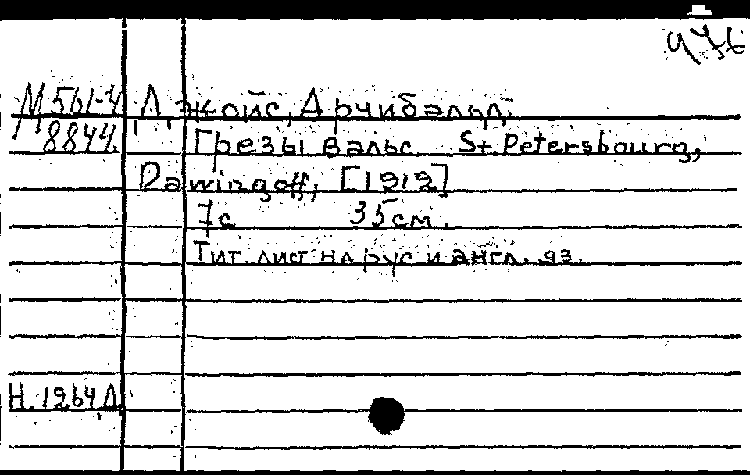 976
М 561-4 Джойс, Арчибальд.
8844. Грезы Вальс St. Petersbourg,
Dawingoff, [1912]
7с 35см.
Тит. лист на рус и англ. яз.
Н. 1264 Д